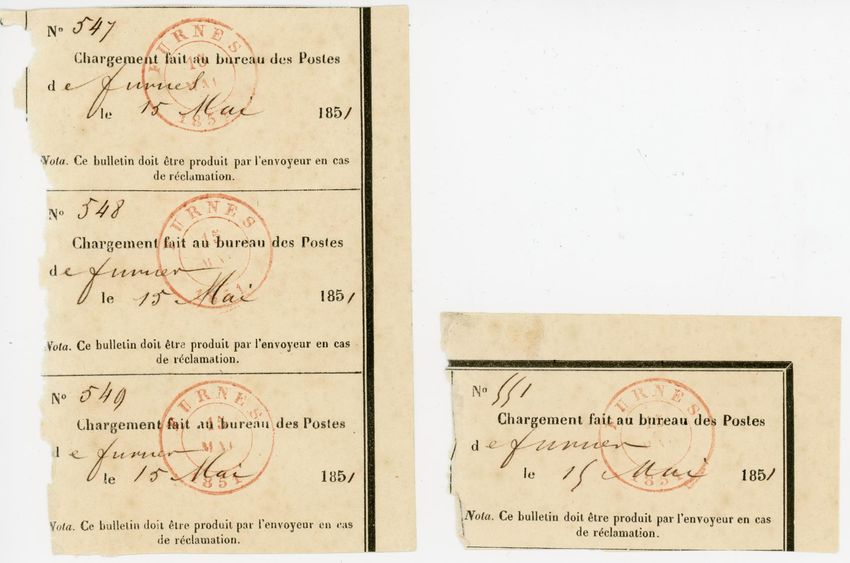 Nº 547
FURNES
15
MAI
1851
Chargement fait au bureau des Postes
de furnes
le 15 Mai 1851
Nota. Ce bulletin doit être produit par l'envoyeur en cas
de réclamation.
Nº 548
FURNES
15
MAI
1851
Chargement fait au bureau des Postes
de furnes
le 15 Mai 1851
Nota. Ce bulletin doit être produit par l'envoyeur en cas
de réclamation.
Nº 549
FURNES
15
MAI
1851
Chargement fait au bureau des Postes
de furnes
le 15 Mai 1851
Nota. Ce bulletin doit être produit par l'envoyeur en cas
de réclamation.
Nº 551
FURNES
15
MAI
1851
Chargement fait au bureau des Postes
de furnes
le 15 Mai 1851
Nota. Ce bulletin doit être produit par l'envoyeur en cas
de réclamation.